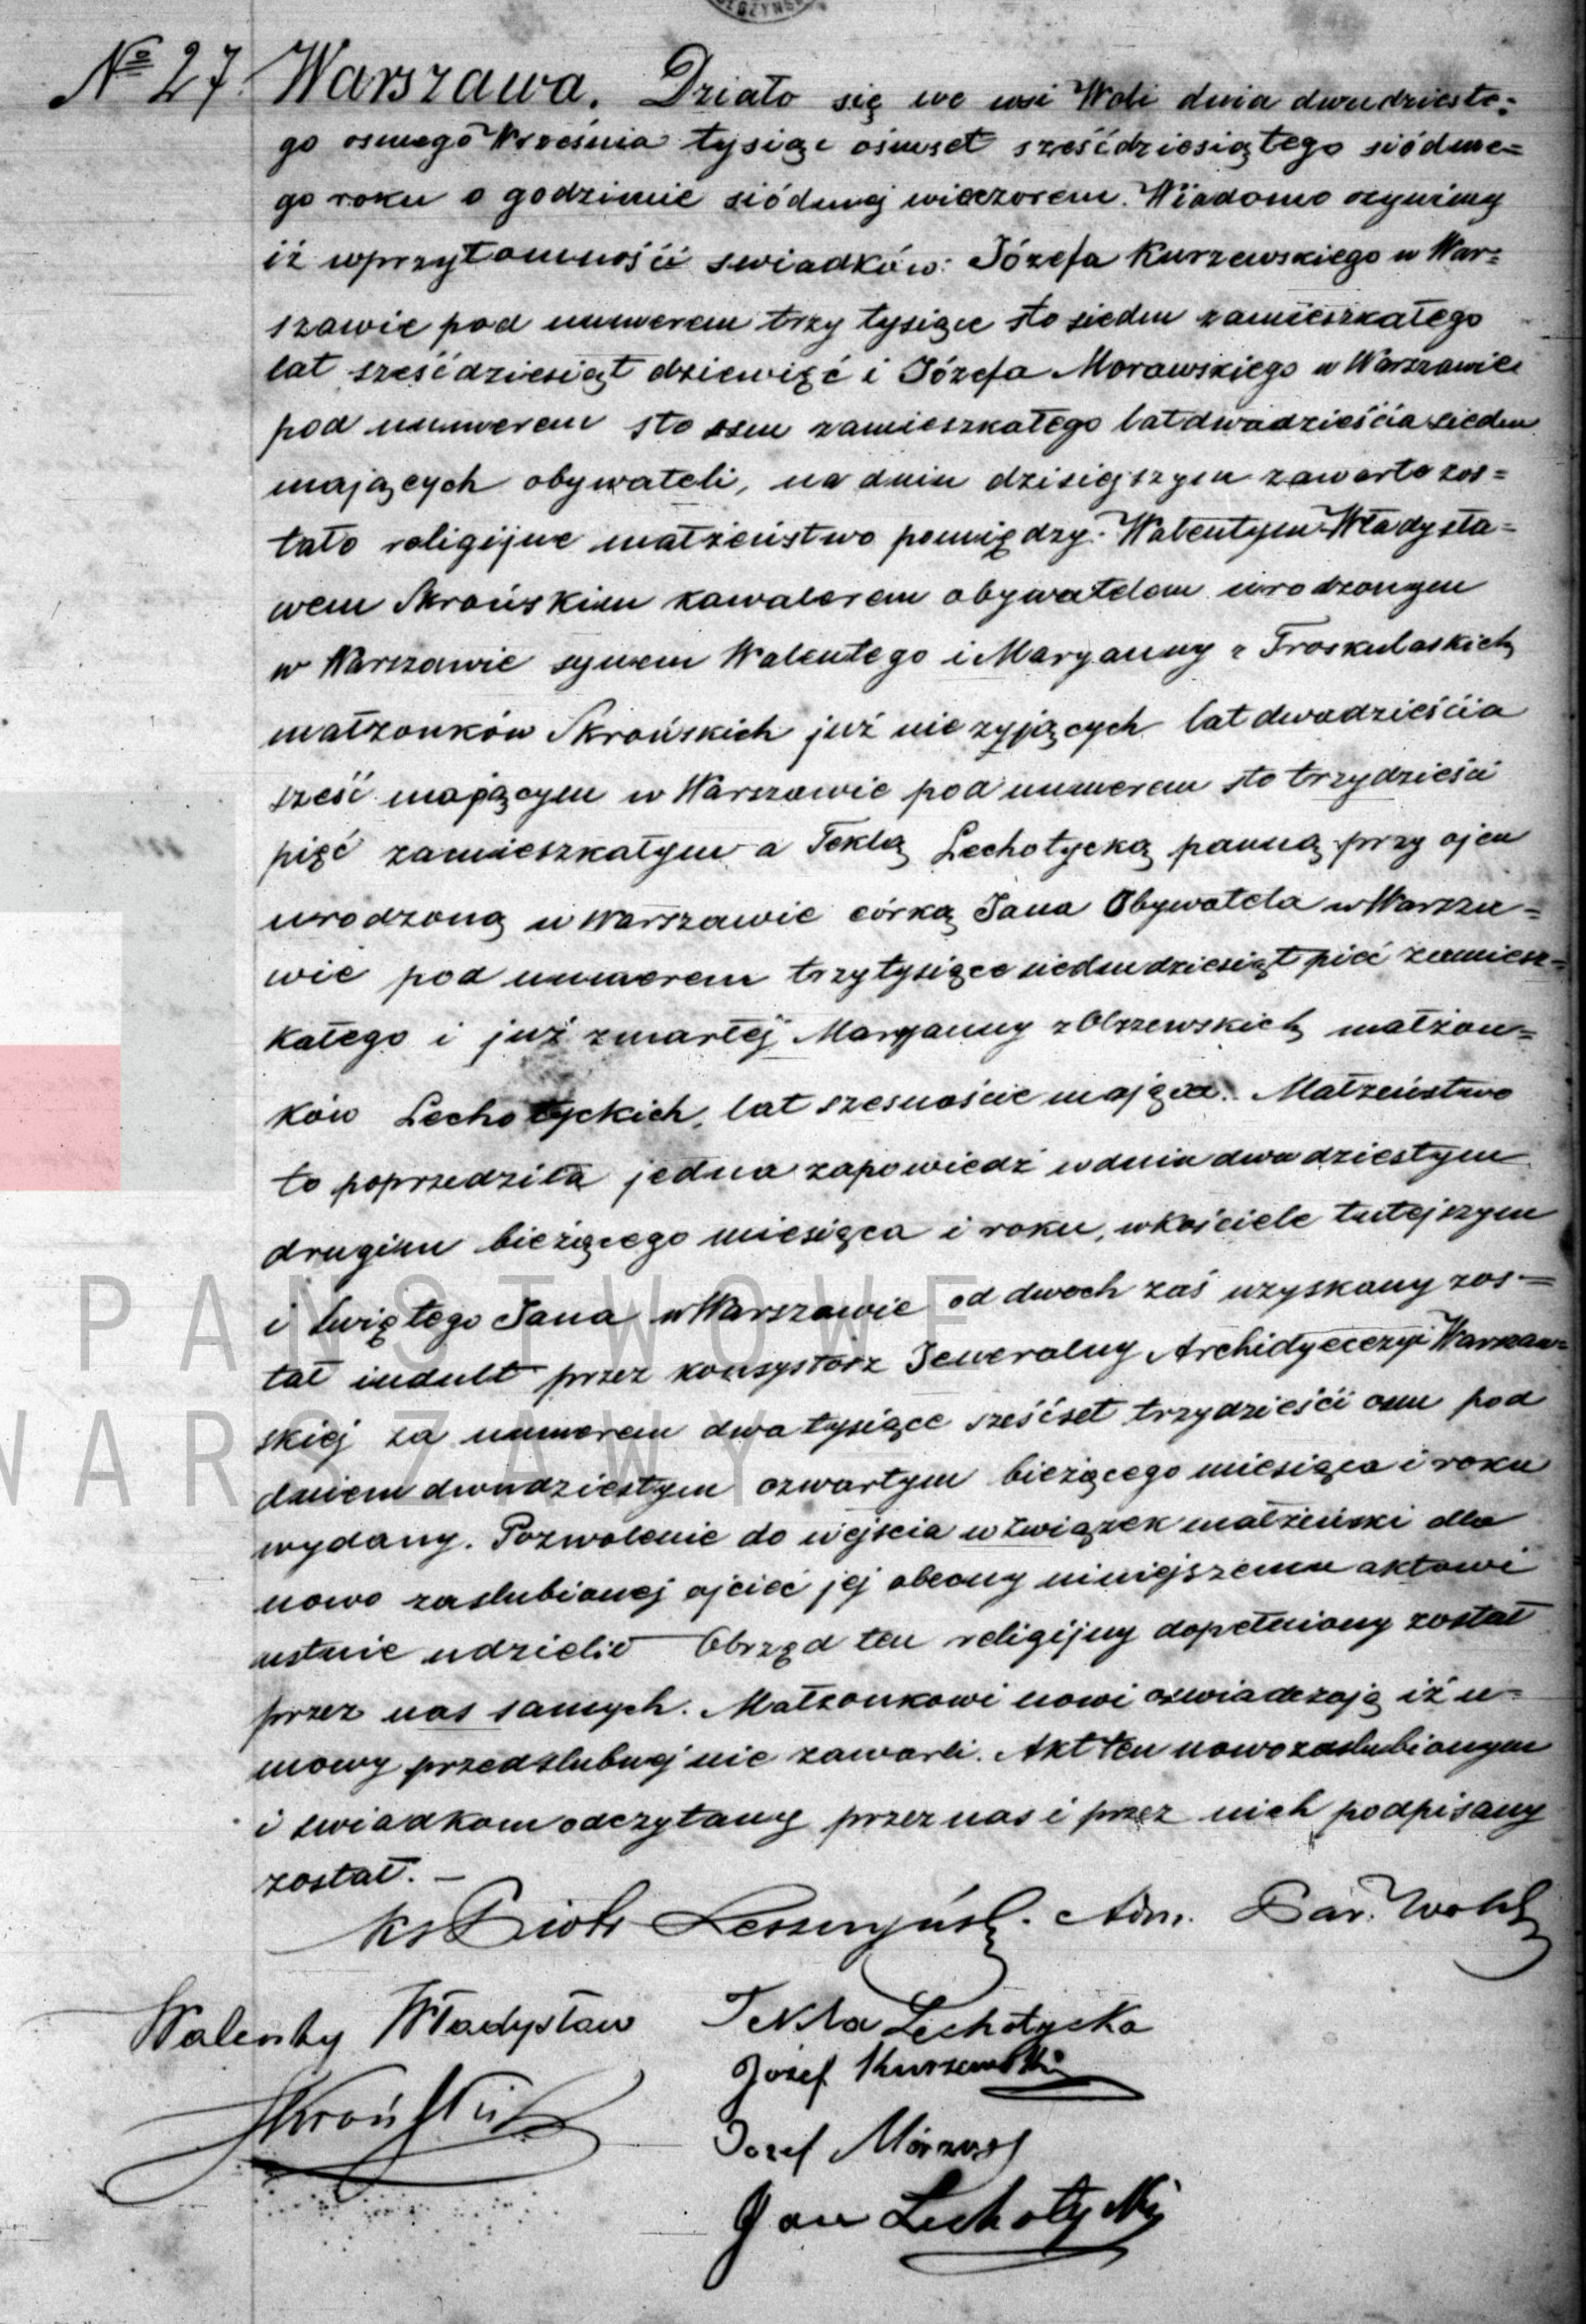 № 27. Warszawa. Działo się we wsi Woli dnia dwudzieste-
go osmego Września tysiąc ośmset sześćdziesiątego siódme=
go roku o godzinie siódmej wieczorem. Wiadomo czynimy
iż wprzytomności swiadków: Józefa Kurzewskiego w War=
szawie pod numerem trzy tysiące sto siedm zamieszkałego
lat sześćdziesiąt dziewięć i Józefa Morawskiego w Warszawie
pod numerem sto osm zamieszkałego lat dwadzieścia siedm
mających obywateli, na dniu dzisiejszym zawarto zos=
tało religijne małżeństwo pomiędzy: Walentym Władysła=
wem Skrońskim kawalerem obywatelem urodzonym
w Warszawie synem Walentego i Maryanny z Troskulaskich
małżonków Skrońskich już nie żyjących lat dwadzieścia
sześć mającym w Warszawie pod numerem sto trzydzieści
pięć zamieszkałym a Teklą Lechotycką panną przy ojcu
urodzoną w Warszawie córką Jana Obywatela w Warsza=
wie pod numerem trzy tysiące siedmdziesiąt pięć zamiesz=
kałego i już zmarłej Maryanny z Olszewskich małżon=
ków Lechotyckich, lat szesnaście mającą. Małżeństwo
to poprzedziła jedna zapowiedź w dniu dwudziestym
drugim bieżącego miesiąca i roku, w kościele tutejszym
i Świętego Jana w Warszawie od dwóch zaś uzyskany zos=
tał indult przez konsystorz Jeneralny Archidyecezyi Warszaw=
skiej za numerem dwa tysiące sześćset trzydzieści osm pod
dniem dwudziestym czwartym bieżącego miesiąca i roku
wydany. Pozwolenie do wejscia w związek małżeński dla
nowo zaślubionej ojciec jej obecny niniejszemu aktowi
ustnie udzielił Obrzęd ten religijny dopełniony został
przez nas samych. Małżonkowi nowi oswiadczają iż u=
mowy przedślubnej nie zawarli. Akt ten nowozaślubionym
i swiadkom odczytany przez nas i przez nich podpisany
został. —
Ks Piotr Adm. Par. Wola
Walenty Władysław Tekla Lechotycka
Józef Kurzewski
Skroński
Jozef
Jan Lechotycki
PAŃSTWOWE
WARSZAWY